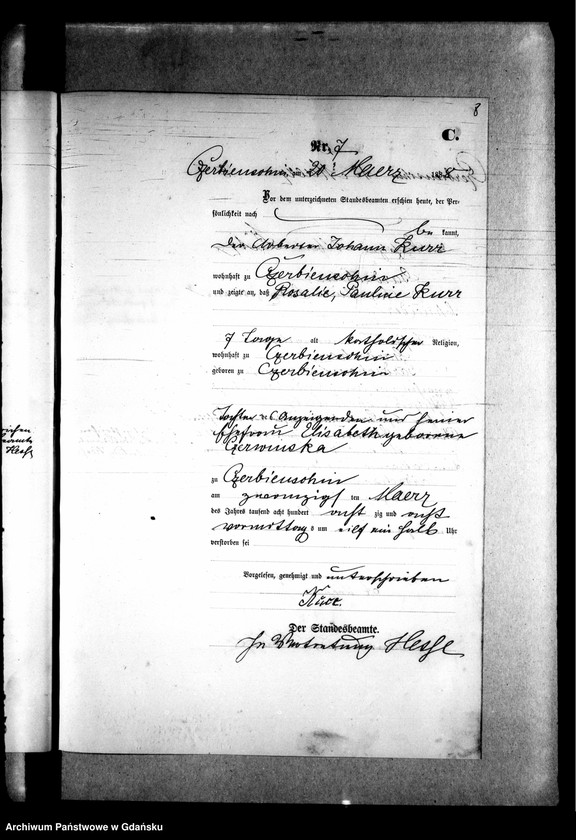 8
C.
Nr. 7
Czerbienschin am 20 Maerz
Vor dem unterzeichneten Standesbeamten erschien heute, der Per-
sönlichkeit nach
be kannt,
der Arbeiter Johann Kurr
wohnhaft zu Czerbienschin
und zeigte an, daß Rosalie, Pauline Kurr
7 Tage alt katholischer Religion,
wohnhaft zu Czerbienschin
geboren zu Czerbienschin
Tochter des Anzeigenden und seiner
Ehefrau Elisabeth geborene
Czerwinska
zu Czerbienschin
am zwanzigst ten Maerz
des Jahrs tausend acht hundert acht zig und acht
vormittags um eilf ein halb Uhr
verstorben sei
Vorgelesen, genehmigt und unterschrieben
Kurr.
Der Standesbeamte.
In Vertretung Hesse
Archiwum Państwowe w Gdańsku